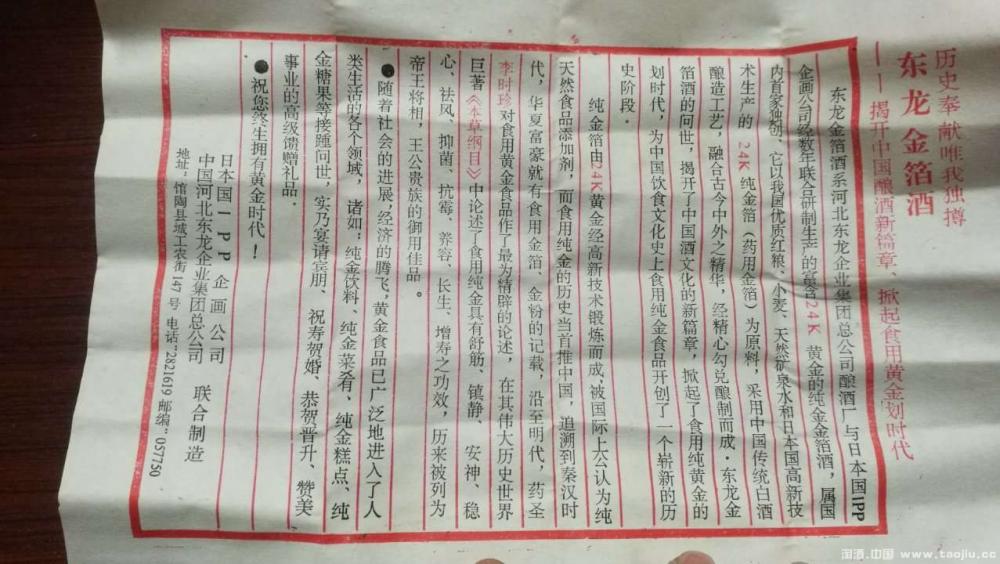 历史奉献唯我独搏
东龙金箔酒
——揭开中国酿酒新篇章、掀起食用黄金划时代
东龙金箔酒系河北东龙企业集团总公司酿酒厂与日本国IPP
企画公司经数年联合研制生产的富含24K 黄金的纯金金箔酒，属国
内首家独创、它以我国优质红粮、小麦、天然矿泉水和日本国高新技
术生产的 24K 纯金箔（药用金箔）为原料，采用中国传统白酒
酿造工艺，融合古今中外之精华，经精心勾兑酿制而成·东龙金
箔酒的问世，揭开了中国酒文化的新篇章，掀起了食用纯黄金的
划时代，为中国饮食文化史上食用纯金食品开创了一个崭新的历
史阶段．
纯金箔由24K黄金经高新技术锻炼而成，被国际上公认为纯
天然食品添加剂，而食用纯金的历史当首推中国，追溯到秦汉时
代，华夏富豪就有食用金箔、金粉的记载，沿至明代，药圣
李时珍对食用黄金食品作了最为精辟的论述，在其伟大历史世界
巨著《本草纲目》中论述了食用纯金具有舒筋、镇静、安神、稳
心、祛风、抑菌、抗霉、养容、长生、增寿之功效，历来被列为
帝王将相，王公贵族的御用佳品。
●随着社会的进展，经济的腾飞，黄金食品已广泛地进入了人
类生活的各个领域，诸如：纯金饮料、纯金菜肴、纯金糕点、纯
金糖果等接踵问世，实乃宴请宾朋、祝寿贺婚、恭贺晋升、赞美
事业的高级馈赠礼品．
●祝您终生拥有黄金时代！
日本国IPP 企画公司
中国河北东龙企业集团总公司 联合制造
地址："馆陶县城工农街147号 电话"2821619 邮编"057750
淘酒.中国 www.taojiu.cc